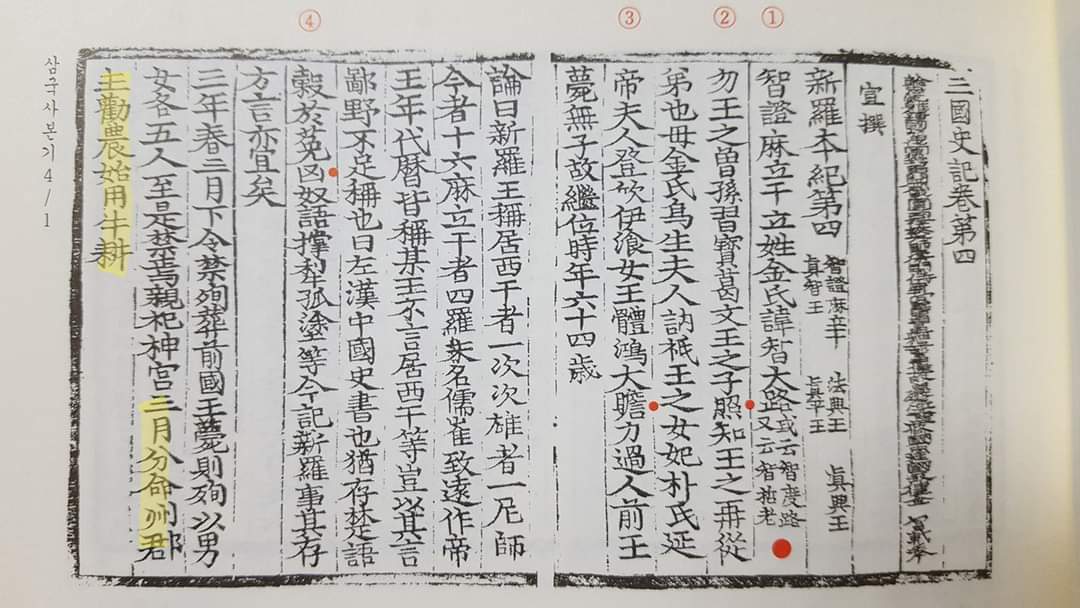 ④ ③ ② ①
三國史記卷第四
宣撰
新羅本紀第四 智證麻立干 法興王 眞興王
眞智王 眞平王
智證麻立干立姓金氏諱智大路或云智度路又云智哲老
勿王之曾孫習寶葛文王之子照知王之再從
弟也母金氏鳥生夫人訥祇王之女妃朴氏延
帝夫人登欣伊飡女王體鴻大膽力過人前王
薨無子故繼位時年六十四歲
論曰新羅王稱居西干者一次次雄者一尼師
今者十六麻立干者四羅末名儒崔致遠作帝
王年代曆皆稱某王不言居西干等豈以其言
鄙野不足稱也曰左漢中國史書也猶存楚語
穀於菟凶奴語撑犁孤塗等今記新羅事其存
方言亦宜矣
三年春二月下令禁殉葬前國王薨則殉以男
女各五人至是禁焉親祀神宮三月分命州郡
主勸農始用牛耕
삼국사본기4/1